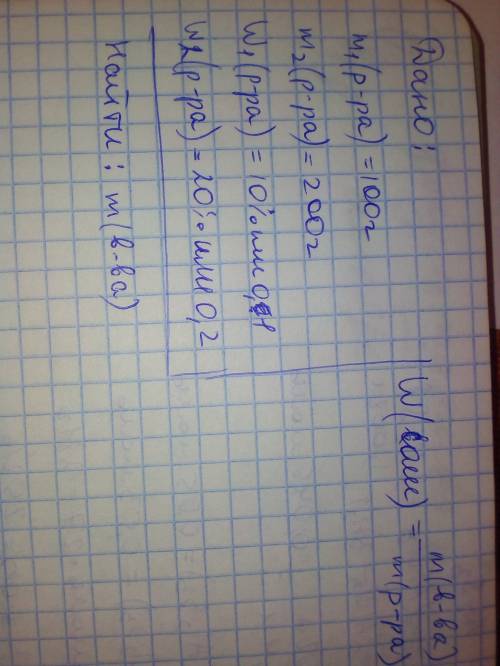 Дано:
m₁(р-ра) = 100г
m₂(р-ра) = 200г
W₁(р-ра) = 10% или 0,1
W₂(р-ра) = 20% или 0,2
Найти: m(в-ва)
W(соли) = m(в-ва)
m(р-ра)